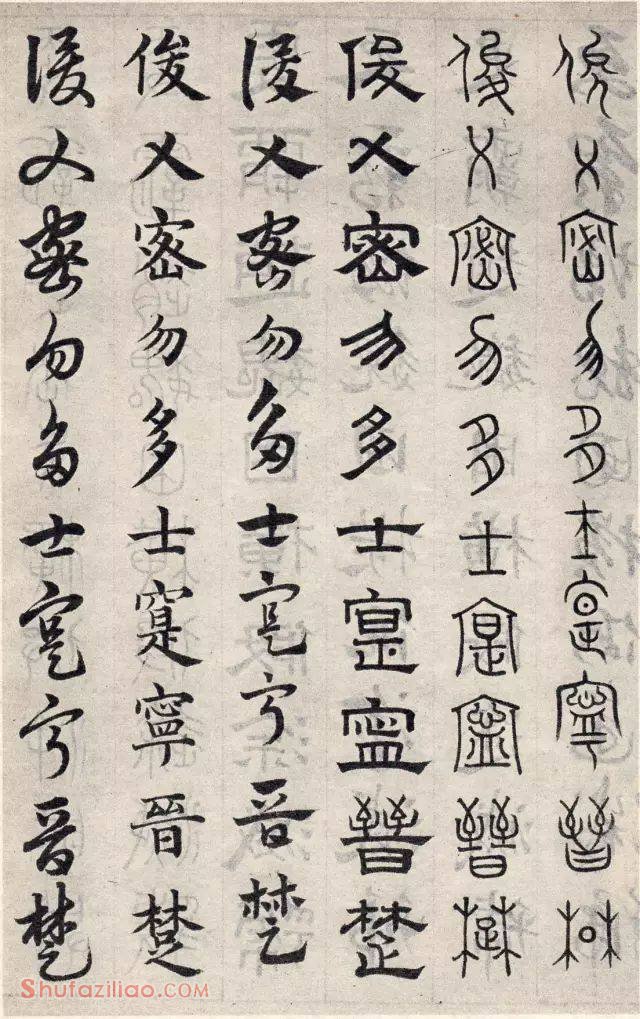 俊乂密勿多士寔寧晉楚
俊乂密勿多士寔寧晉楚
俊乂密勿多士寔寧晉楚
俊乂密勿多士寔寧晉楚
俊乂密勿多士寔寧晉楚
俊乂密勿多士寔寧晉楚
Shufaziliao.COM